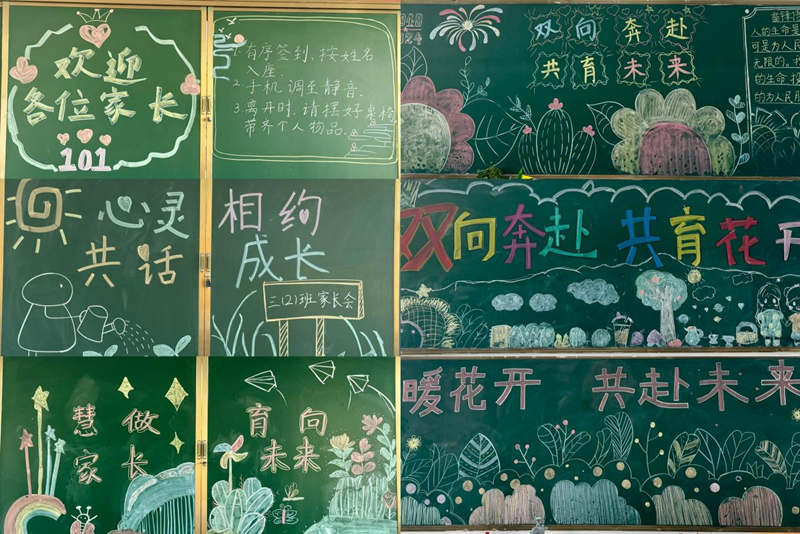 欢迎
各位家长
101
1. 有序签到，按姓名
入座.
2. 手机调至静音.
3. 离开时，请摆好桌椅
带齐个人物品.
双向奔赴
共育未来
人的生命是
可是为人民
无限的，我
的生命投
的为人民服
心灵
共话
相约
成长
三(2)班家长会
双向奔赴 共育花开
慧做
家长
育向
未来
暖花开 共赴未来